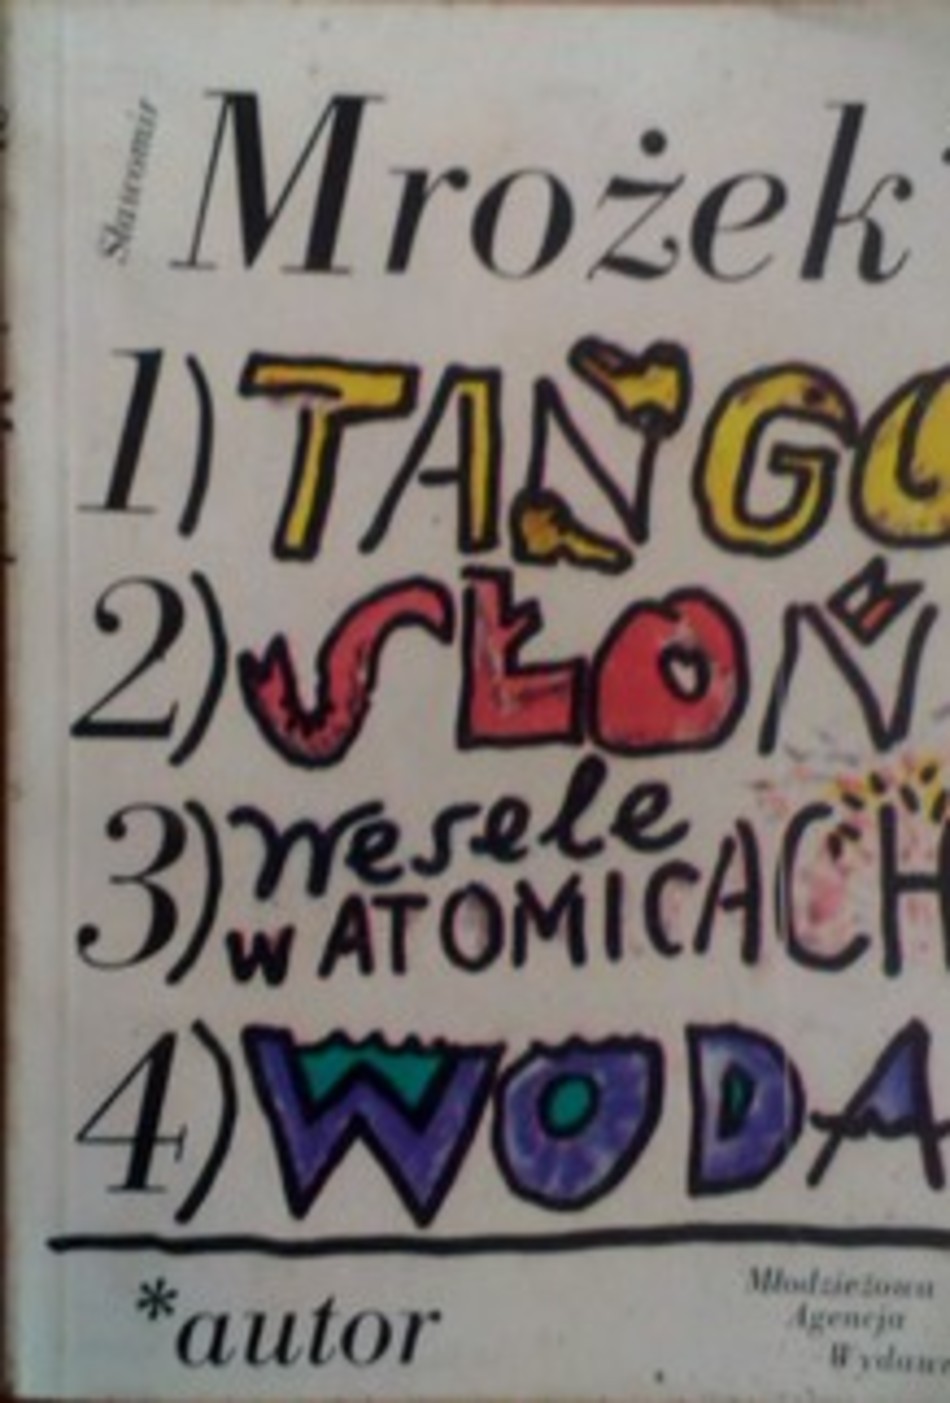 Sławomir
Mrożek*
1) TANGO
2) SŁOŃ
3) Wesele
w ATOMICACH
4) WODA
*autor
Młodzieżowa
Agencja